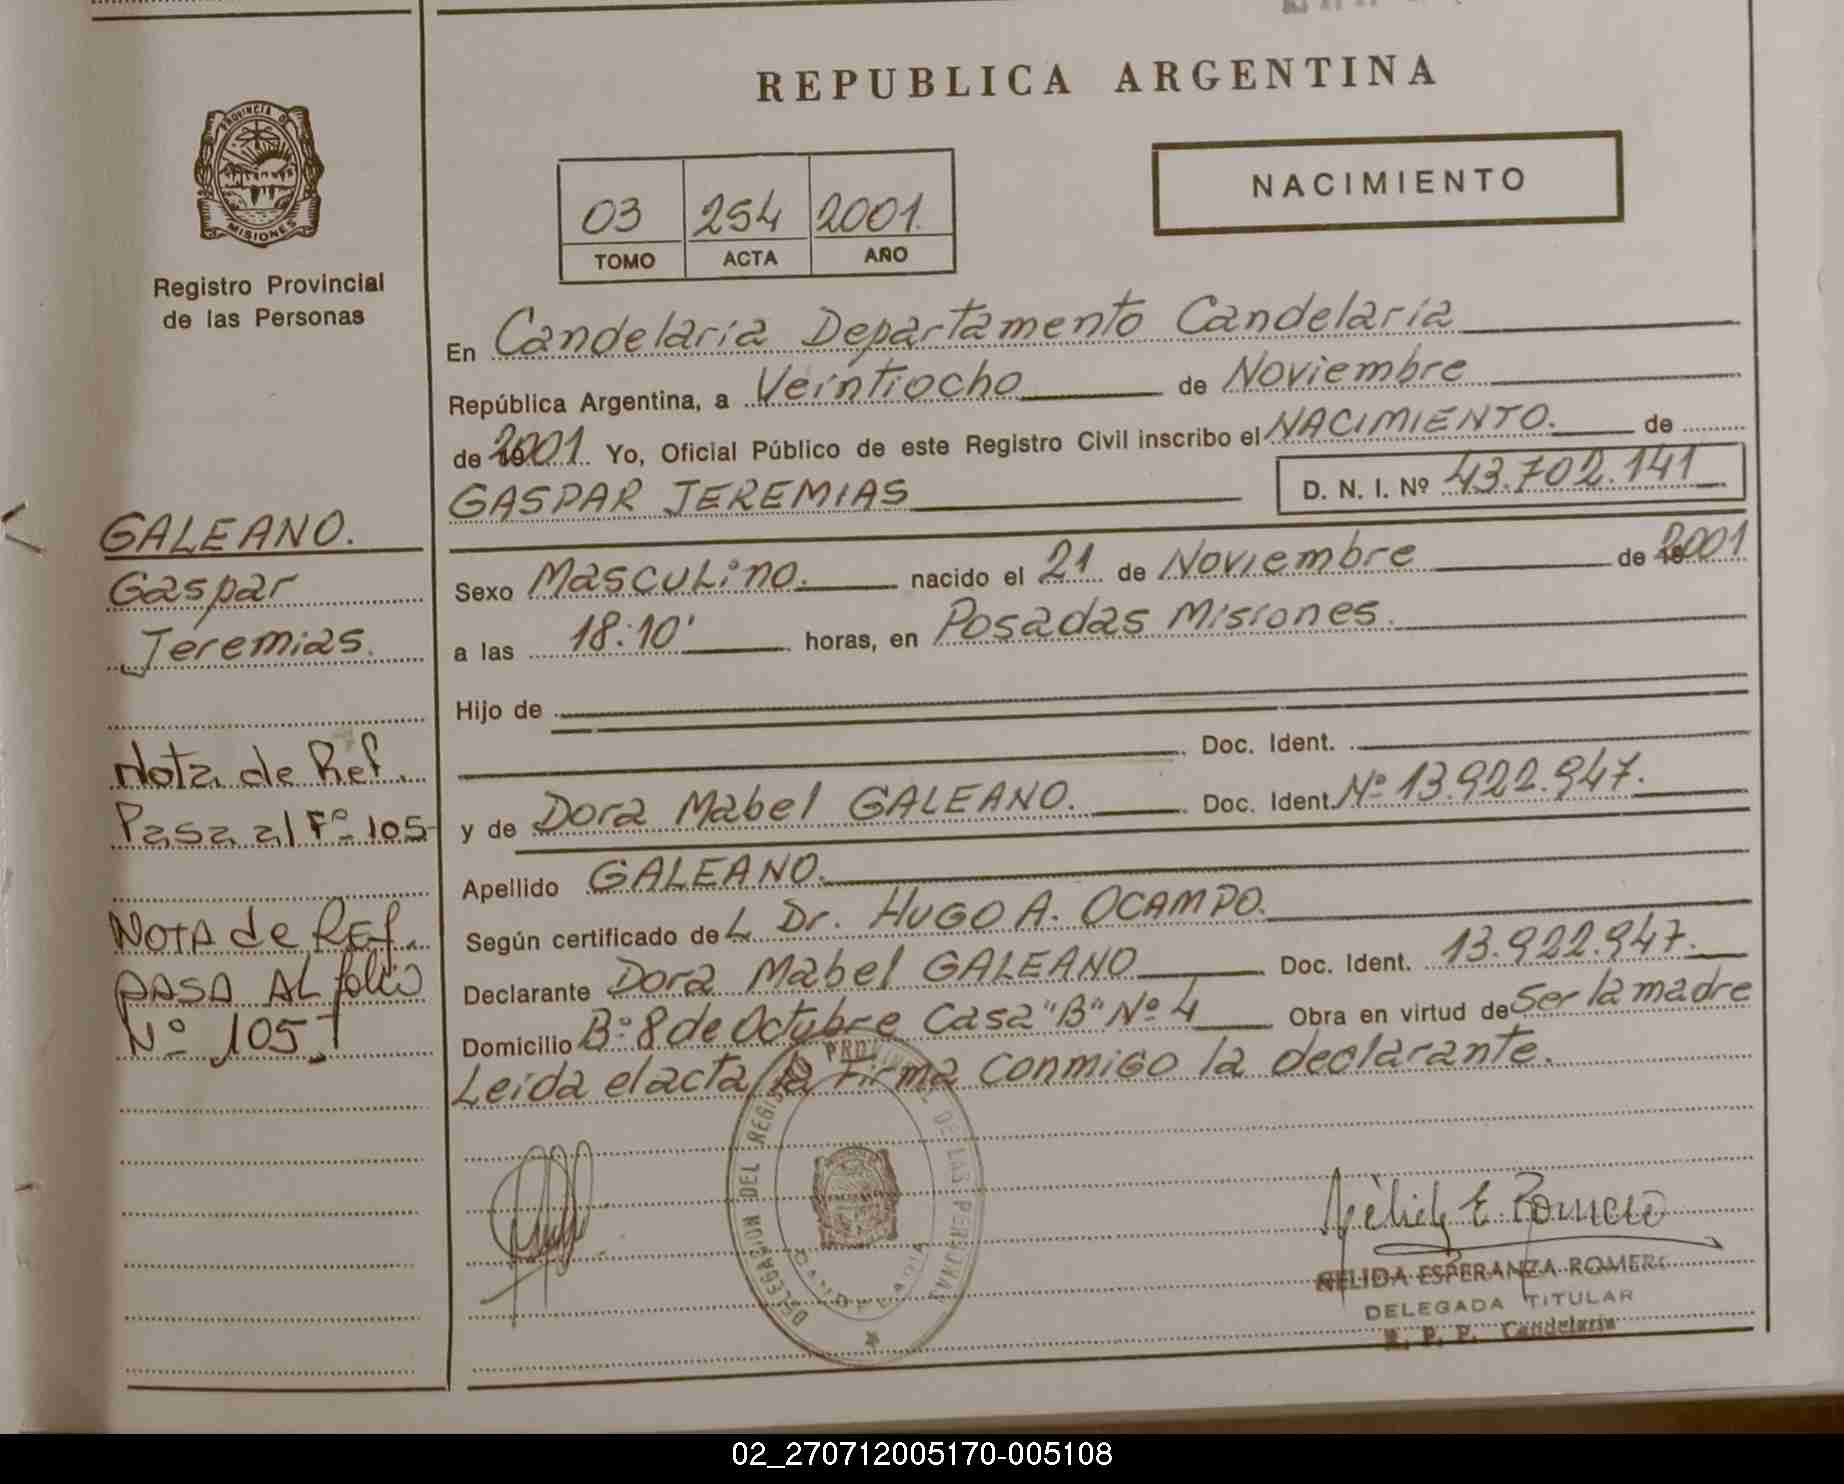 REPUBLICA ARGENTINA
PROVINCIA DE
MISIONES
Registro Provincial
de las Personas
NACIMIENTO
03 254 2001
TOMO ACTA AÑO
En Candelaria Departamento Candelaria
República Argentina, a Veintiocho de Noviembre
de 2001 Yo, Oficial Público de este Registro Civil inscribo el NACIMIENTO. de
GASPAR JEREMIAS D. N. I. Nº 43.702.141
Sexo Masculino. nacido el 21 de Noviembre de 2001
a las 18:10' horas, en Posadas Misiones.
Hijo de
Doc. Ident.
y de Dora Mabel GALEANO. Doc. Ident. Nº 13.922.947.
Apellido GALEANO.
Según certificado del Dr. HUGO A. OCAMPO.
Declarante Dora Mabel GALEANO Doc. Ident. 13.922.947.
Domicilio Bº 8 de Octubre Casa "B" Nº 4 Obra en virtud de Ser la madre
Leida el acta la firma conmigo la declarante.
GALEANO.
Gaspar
Jeremias.
Nota de Ref.
Pasa al Fº 105
NOTA de REf.
PASA AL folio
Nº 105
DELEGACION DEL REGISTRO PROVINCIAL DE LAS PERSONAS
CANDELARIA
Nélida E. Romero
NELIDA ESPERANZA ROMERO
DELEGADA TITULAR
R. P. P. Candelaria
02_270712005170-005108